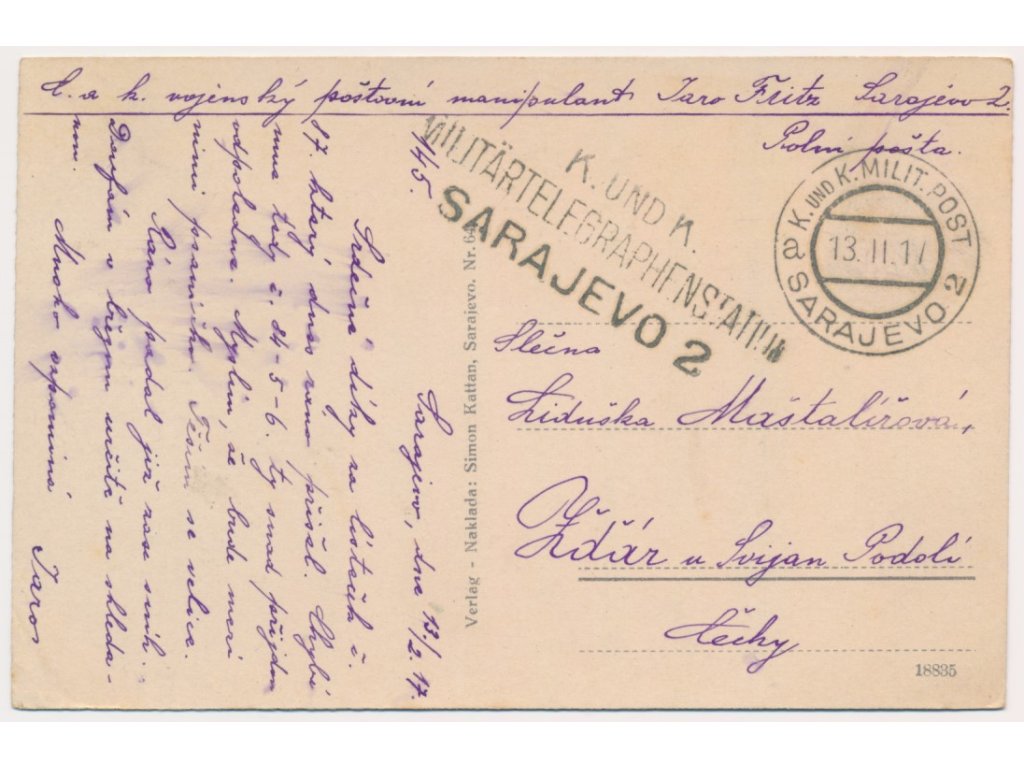 C. a k. vojenský poštovní manipulant Jaro Fritz Sarajevo 2.
Polní pošta.
K. UND K.
MILITÄRTELEGRAPHENSTATION
SARAJEVO 2
K. UND K. MILIT. POST
SARAJEVO 2
a
13.II.17
Slečna
Liduška Maštalířová,
Žďár u Svijan Podolí
Čechy
18835
Verlag - Naklada: Simon Kattan, Sarajevo. Nr. 64
4/45.
Sarajevo, dne 13./2. 17.
Srdečné díky za lísteček č.
87. který dnes ráno přišel. Chybí
mna tedy č. 84-5-6. ty snad přijdou
odpoledne. Myslím, že bude mezi
nimi psaníčko. Těším se velice.
Ráno padal již zase sníh.
Doufám v brzym určitě na shleda-
nou.
Mnoho vzpomíná
Jaros